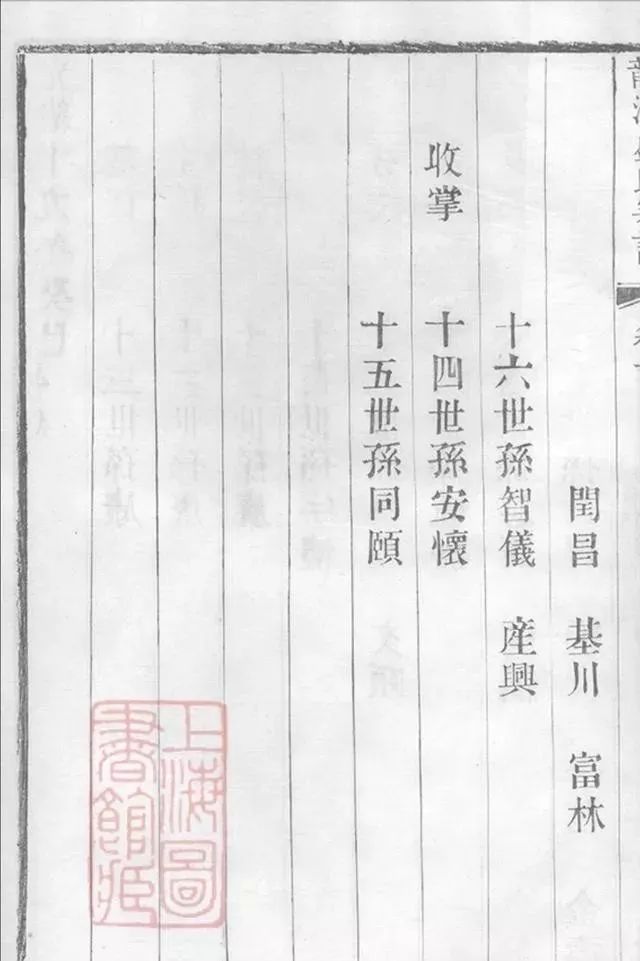 閏昌 基川 富林
十六世孫智儀 産興
收掌 十四世孫安懷
十五世孫同頤
上海圖
書館藏